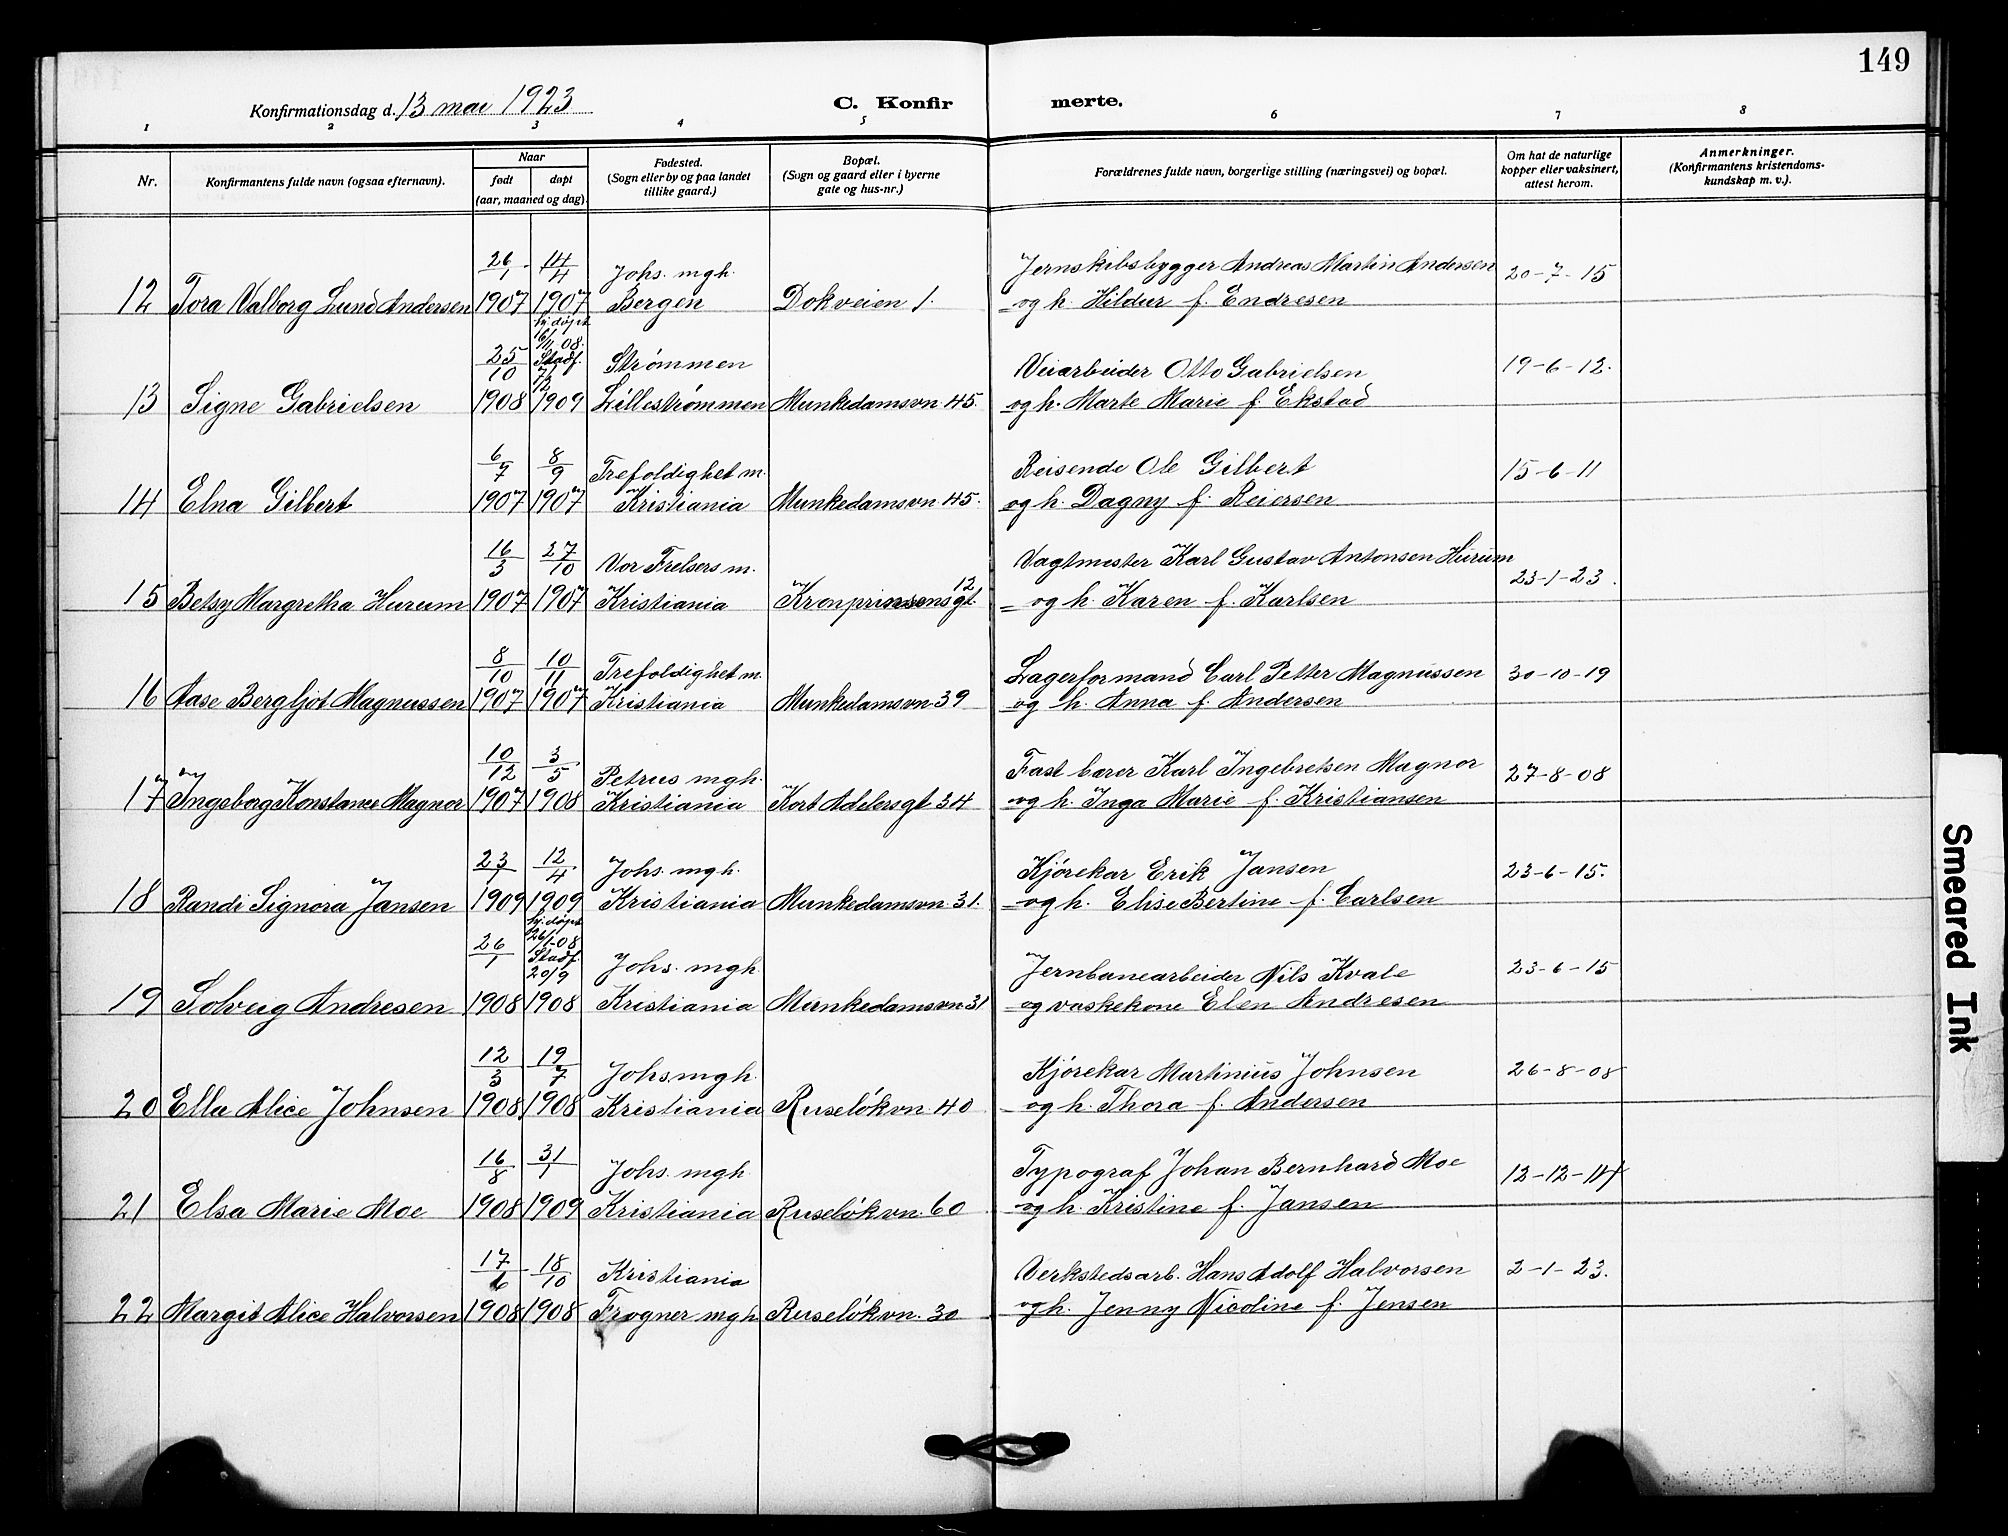 149
Konfirmationsdag d. 13 mai 1923
C. Konfir merte.
1 2 3 4 5 6 7 8
Nr.
Konfirmantens fulde navn (ogsaa efternavn).
Naar
født
døpt
(aar, maaned og dag).
Fødested.
(Sogn eller by og paa landet
tillike gaard.)
Bopæl.
(Sogn og gaard eller i byerne
gate og hus-nr.)
Forældrenes fulde navn, borgerlige stilling (næringsvei) og bopæl.
Om hat de naturlige
kopper eller vaksinert,
attest herom.
Anmerkninger.
(Konfirmantens kristendoms-
kundskap m. v.).
26/1 14/4 Johs. mgh. Jernskibsbygger Andreas Martin Andersen 20-7-15
12 Tora Valborg Lund Andersen 1907 1907 Bergen Dokveien 1. og h. Hildur f. Endresen
hj. døpt
16/11 08.
25/10 Stadf. Strømmen Veiarbeider Otto Gabrielsen 19-6-12.
7/12
13 Signe Gabrielsen 1908 1909 Lillestrømmen Munkedamsvn. 45. og h. Marte Marie f. Ekstad
6/7 8/9 Trefoldighet m. Reisende Ole Gilbert 15-6-11
14 Elna Gilbert 1907 1907 Kristiania Munkedamsvn. 45. og h. Dagny f. Reiersen
16/3 27/10 Vor Frelsers m. Vagtmester Karl Gustav Antonsen Hurum 23-1-23.
15 Betsy Margretha Hurum 1907 1907 Kristiania Kronprinsensgt. 12 og h. Karen f. Karlsen
8/10 10/11 Trefoldighet m. Lagerformand Carl Petter Magnussen 30-10-19
16 Aase Bergljot Magnussen 1907 1907 Kristiania Munkedamsvn. 39 og h. Anna f. Andersen
10/12 3/5 Petrus mgh. Fast bærer Karl Ingebretsen Magnor 27-8-08
17 Ingeborg Konstance Magnor 1907 1908 Kristiania Kort Adelersgt 34 og h. Inga Marie f. Kristiansen
23/1 12/4 Johs. mgh. Kjørekar Erik Jansen 23-6-15.
18 Randi Signora Jansen 1909 1909 Kristiania Munkedamsvn. 31. og h. Elise Bertine f. Carlsen
hj. døpt
26/1-08
26/1 Stadf. Johs. mgh. Jernbanearbeider Nils Kvale 23-6-15
20/9
19 Solveig Andresen 1908 1908 Kristiania Munkedamsvn 31 og vaskekone Elen Andresen
12/3 19/7 Johs. mgh. Kjørekar Martinius Johnsen 26-8-08
20 Ella Alice Johnsen 1908 1908 Kristiania Ruseløkvn. 40 og h. Thora f. Andersen
16/8 31/1 Johs. mgh Typograf Johan Bernhard Moe 12-12-14
21 Elsa Marie Moe 1908 1909 Kristiania Ruseløkvn. 60 og h. Kristine f. Jansen
17/6 18/10 Kristiania Verkstedsarb. Hans Adolf Halvorsen 2-1-23.
22 Margit Alice Halvorsen 1908 1908 Frogner mgh Ruseløkvn. 30 og h. Jenny Nicoline f. Jensen
Smeared Ink